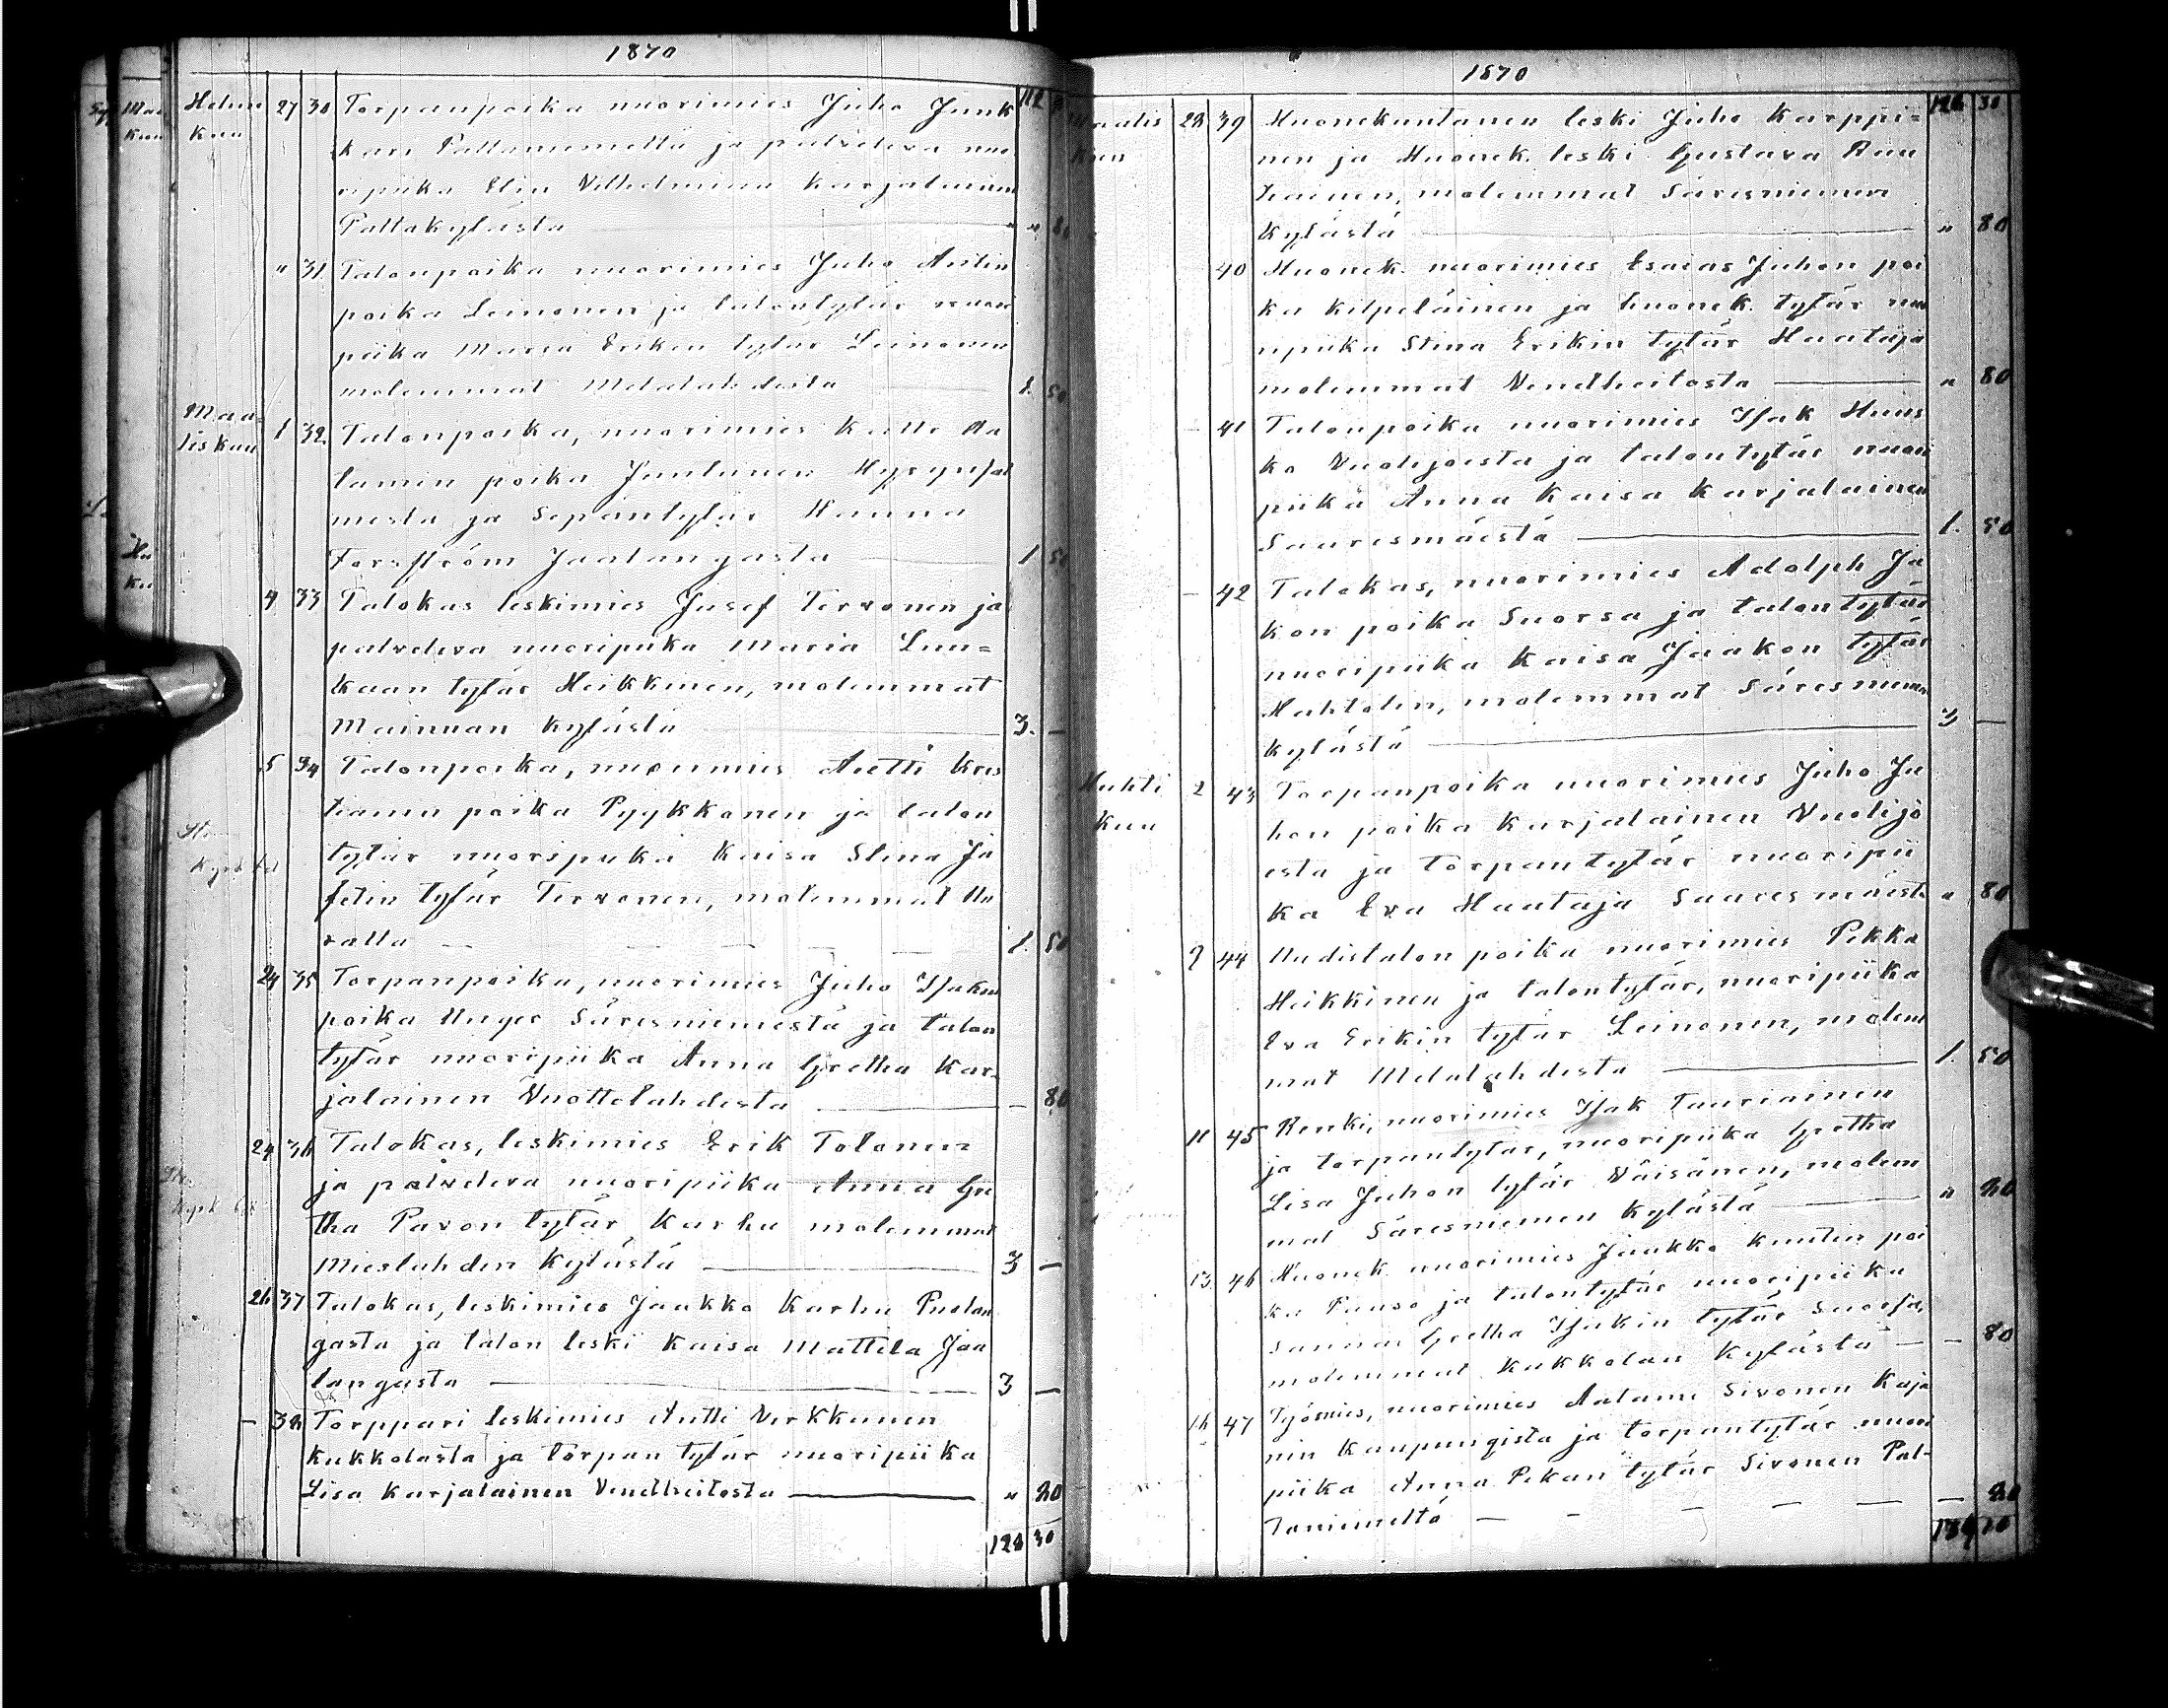 1870
Helmi 27 30 Torpanpoika nuorimies Juho Junk 112
kuu kari Paltaniemeltä ja palveleva nuo
ripiika Elin Vilhelmiina Karjalainen
Paltakylästä „ 80
„ 31 Talonpoika nuorimies Juho Antin
poika Leinonen ja talontytär nuori
piika Maria Erikin tytär Leinonen
molemmat Melalahdesta 1. 50
Maa-
liskuu 1 32. Talonpoika, nuorimies Kalle Aa
tamin poika Juntunen Hyrynsal
mesta ja Sepäntytär Hanna
Forsström Jaalangasta 1 50
4 33 Talokas leskimies Josef Tervonen ja
palveleva nuoripiika Maria Luu=
kaan tytär Heikkinen, molemmat
Mainuan kylästä 3. —
5 34 Talonpoika, nuorimies Antti Kris
tianin poika Pyykkönen ja talon
tytär nuoripiika Kaisa Stina Jo
sefin tytär Tervonen, molemmat Uu
ralta 1. 50
24 35 Torpanpoika, nuorimies Juho Isakin
poika Unger Säresniemestä ja talon
tytär nuoripiika Anna Gretha Kar-
jalainen Vuottolahdesta — 80
24 36 Talokas, leskimies Erik Tolonen
ja palveleva nuoripiika Anna Gre
tha Pavon tytär Karhu molemmat
Mieslahden kylästä 3 —
26 37 Talokas, leskimies Jaakko Karhu Puolan
gasta ja talon leski Kaisa Mattila Jaa
langasta 3 —
— 38 Torppari leskimies Antti Verkkunen
Kukkolasta ja torpan tytär nuoripiika
Lisa Karjalainen Venetheitosta „ 80
128 30
1870
Maalis 28 39 Huonekuntanen leski Juho Karppi= 128 30
kuun nen ja Huonek. leski Gustava Rau
tiainen, molemmat Säresniemen
kylästä „ 80
40 Huonek. nuorimies Esaias Juhon poi
ka Kilpeläinen ja huonek. tytär nuo
ripiika Stina Erikin tytär Huataja
molemmat Venetheitosta „ 80
— 41 Talonpoika nuorimies Isak Huus
ko Vuolijoesta ja talontytär nuori
piika Anna Kaisa Karjalainen
Saaresmäestä 1. 50
— 42 Talokas, nuorimies Adolph Ja
kon poika Suorsa ja talontytär
nuoripiika Kaisa Jaakon tytär
Huhtelin, molemmat Säresniemen
kylästä 3 —
Huhti 2 43 Torpanpoika nuorimies Juho Ju
kuu hon poika Karjalainen Vuolijo
esta ja torpantytär nuoripii
ka Eva Huataja Saaresmäestä „ 80
9 44 Uudistalon poika nuorimies Pekka
Heikkinen ja talontytär, nuoripiika
Eva Erikin tytär Leinonen, molem
mat Melalahdesta 1. 50
11 45 Renki, nuorimies Isak Tauriainen
ja torpantytär, nuoripiika Gretha
Lisa Juhon tytär Väisänen, molem
mat Säresniemen kylästä „ 80
13 46 Huonek. nuorimies Jaakko Knutin poi
ka Panso ja talontytär nuoripiika
Sanna Gretha Isakin tytär Suorsa,
molemmat Kukkolan kylästä — 80
16 47 Työmies, nuorimies Aatami Sivonen Kaja
nin kaupungista ja torpantytär nuori
piika Anna Pekan tytär Sivonen Pal-
taniemeltä — 80